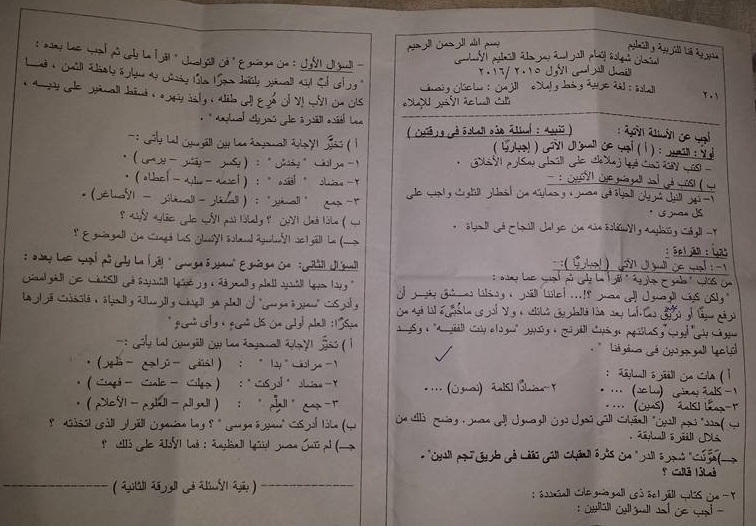 مديرية قنا للتربية والتعليم
بسم الله الرحمن الرحيم
امتحان شهادة إتمام الدراسة بمرحلة التعليم الأساسى
الفصل الدراسى الأول ٢٠١٥ /٢٠١٦
المادة : لغة عربية وخط وإملاء الزمن : ساعتان ونصف
٢٠١
ثلث الساعة الأخير للإملاء
أجب عن الأسئلة الآتية : ( تنبيه : أسئلة هذه المادة فى ورقتين )
أولاً : التعبير : ( أ ) أجب عن السؤال الآتى ( إجباريًا )
- اكتب لافتة تحث فيها زملاءك على التحلى بمكارم الأخلاق .
ب ) اكتب فى أحد الموضوعين الآتيين : -
١- نهر النيل شريان الحياة فى مصر، وحمايته من أخطار التلوث واجب على
كل مصرى .
٢- الوقت وتنظيمه والاستفادة منه من عوامل النجاح فى الحياة .
ثانياً : القراءة :
١- : أجب عن السؤال الآتي ( إجباريًا ):-
من كتاب " طموح جارية " اقرأ ما يلى ثم أجب عما بعده :
"ولكن كيف الوصول إلى مصر ؟!... أعاننا القدر ، ودخلنا دمشق بغير أن
نرفع سيفًا أو نريق دمًا،أما بعد هذا فالطريق شائك ، ولا أدرى ماخُبِّئ لنا فيه من
سيوف بنى أيوب وكمائنهم ،وخبث الفرنج ، وتدبير "سوداء بنت الفقيه" ، وكيد
أتباعها الموجودين فى صفوفنا " .
أ ) هات من الفقرة السابقة :
١- كلمة بمعنى (ساعد) .... . ٢-مضادًا لكلمة (نصون) .... .
٣-جمعًا لكلمة (كمين) .... .
ب )حدد" نجم الدين" العقبات التى تحول دون الوصول إلى مصر. وضح ذلك من
خلال الفقرة السابقة .
جـ)هَوَّنَت" شجرة الدر" من كثرة العقبات التى تقف فى طريق"نجم الدين" .
فماذا قالت ؟
٢- من كتاب القراءة ذى الموضوعات المتعددة :
- أجب عن أحد السؤالين التاليين :
- السؤال الأول : من موضوع " فن التواصل " اقرأ ما يلى ثم أجب عما بعده :
"ورأى أبٌ ابنه الصغير يلتقط حجرًا حادًا يخدش به سيارة باهظة الثمن ، فما
كان من الأب إلا أن هُرِع إلى طفله ، وأخذ ينهره ، فسقط الصغير على يديه ،
مما أفقده القدرة على تحريك أصابعه " .
أ ) تخيَّر الإجابة الصحيحة مما بين القوسين لما يأتى :-
١- مرادف " يخدش " : ( يكسر – يقشر – يرمى ) .
٢- مضاد " أفقده " : ( أعدمه – سلبه – أعطاه ) .
٣- جمع " الصغير" : ( الصُّغار – الصغائر – الأصاغر) .
ب ) ماذا فعل الابن ؟ ولماذا ندم الأب على عقابه لأبنه ؟
جـ) ما القواعد الأساسية لسعادة الإنسان كما فهمت من الموضوع ؟
السؤال الثانى: من موضوع "سميرة موسى " إقرأ ما يلى ثم أجب عما بعده :
" وبدا حبها الشديد للعلم والمعرفة ، ورغبتها الشديدة فى الكشف عن الغوامض
وأدركت "سميرة موسى" أن العلم هو الهدف والرسالة والحياة ، فاتخذت قرارها
مبكرًا: العلم أولى من كل شىءٍ ، وأى شىءٍ "
أ ) تخيَّر الإجابة الصحيحة مما بين القوسين لما يأتى :-
١- مرادف " بدا " : ( اختفى – تراجع – ظهر) .
٢- مضاد " أدركت" : ( جهلت – علمت – فهمت ) .
٣- جمع " العِلْم " : ( العوالم – العُلوم – الأعلام ) .
ب) ماذا أدركت "سميرة موسى" ؟ وما مضمون القرار الذى اتخذته ؟
جـ) لم تنسَ مصر ابنتها العظيمة : فما الأدلة على ذلك ؟
( بقية الأسئلة فى الورقة الثانية )